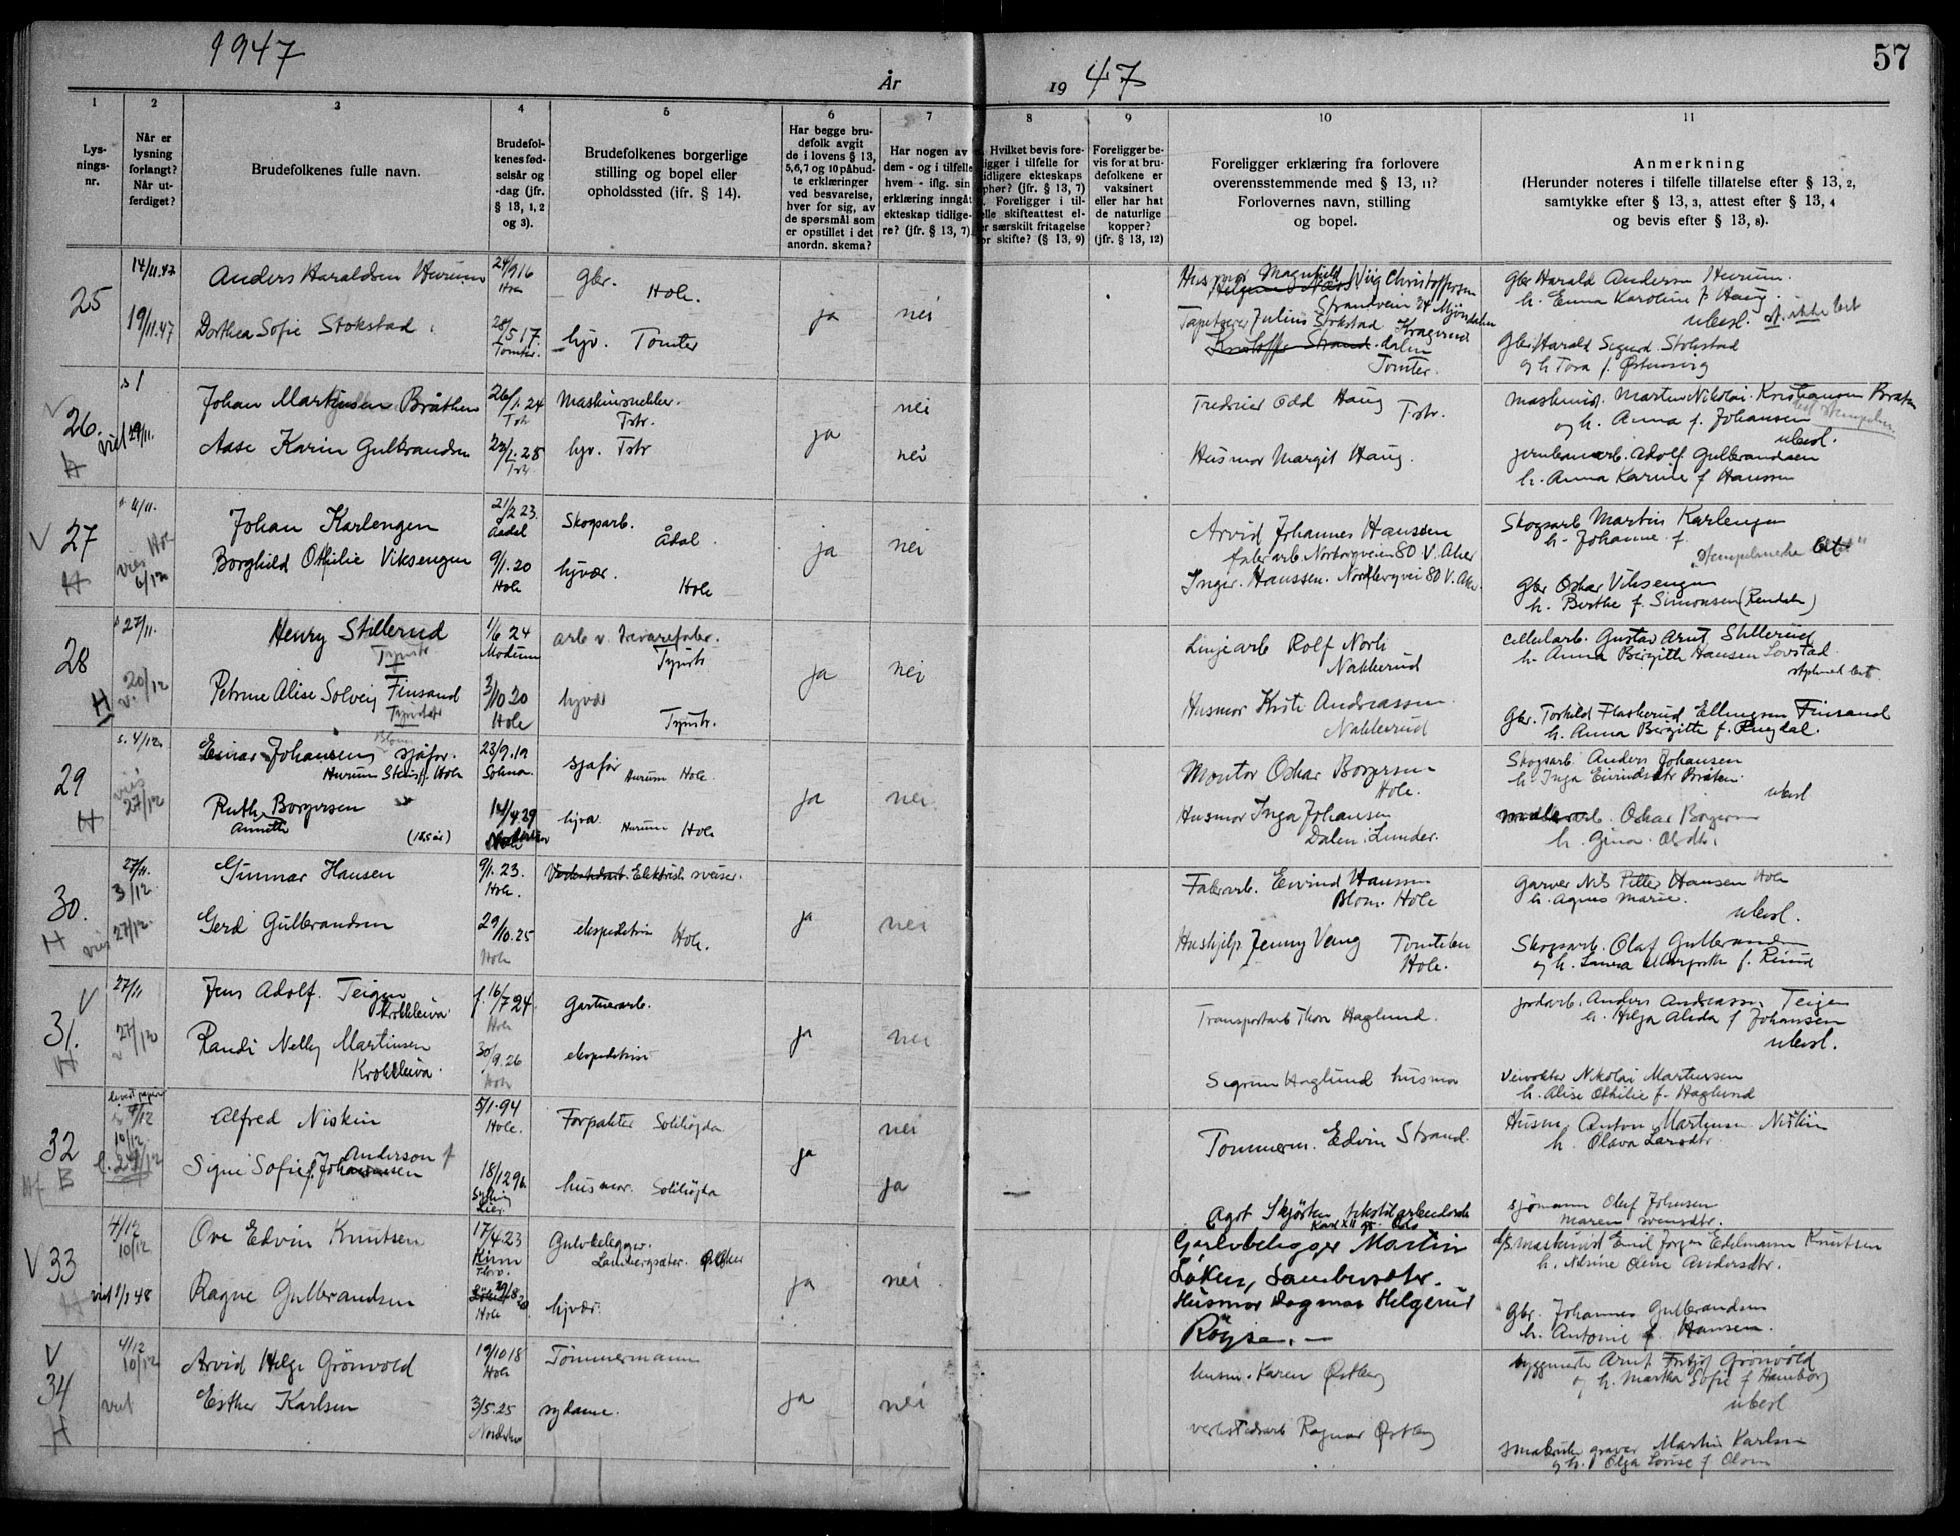 1947
År
19 47
57
1
2
3
4
5
6
7
8
9
10
11
Lys-
nings-
nr.
Når er
lysning
forlangt?
Når ut-
ferdiget?
Brudefolkenes fulle navn.
Brudefol-
kenes fød-
selsår og
-dag (jfr.
§ 13, 1, 2
og 3).
Brudefolkenes borgerlige
stilling og bopel eller
opholdssted (ifr. § 14).
Har begge bru-
defolk avgit
de i lovens § 13,
5,6,7 og 10 påbud-
te erklæringer
ved besvarelse,
hver for sig, av
de spørsmål som
er opstillet i det
anordn. skema?
Har nogen av
dem - og i tilfelle
hvem - iflg. sin
erklæring inngåt
ekteskap tidlige-
re? (jfr. § 13, 7).
Hvilket bevis fore-
ligger i tilfelle for
tidligere ekteskaps
ophør? (jfr. § 13, 7)
Foreligger i til-
elle skifteattest el-
er særskilt fritagelse
or skifte? (§ 13, 9)
Foreligger be-
vis for at bru-
defolkene er
vaksinert
eller har hat
de naturlige
kopper?
(jfr. § 13, 12)
Foreligger erklæring fra forlovere
overensstemmende med § 13, 11?
Forlovernes navn, stilling
og bopel.
Anmerkning
(Herunder noteres i tilfelle tillatelse efter § 13, 2,
samtykke efter § 13, 3, attest efter § 13, 4
og bevis efter § 13, 8).
25
14/11.47
Anders Haraldsen Hurum
24/9 16
Hole
Gbr. Hole.
ja
nei
Husmor Magnhild Viig Christoffersen
Strandvein 34 Mjøndalen
Gbr Harald Andersen Hurum.
h. Emma Karoline f. Haug.
ubesl. ikke
19/11.47
Dorthea Sofie Stokstad
28/5 17.
Tomter.
hjv. Tomter
Tapetserer Julius Stokstad
Tomter.
Gbr. Harald Sigurd Stokstad
og h. Tora f. Østensvig
26.
Johan Martinsen Bråthen
26/1.24
Tstr
Maskinsnekker.
Tstr.
ja
nei
Fredrier Odd Haug Tstr.
Martin Nikolai Kristiansen Braten
og h. Anna f. Johansen
ubesl.
viet 29/11.
Aase Karin Gulbrandsen
hjv. Tstr
nei
Husmor Margit Haug.
jernbanearb. Adolf Gulbrandsen
h. Anna Karine f Hansen
H
V 27
Johan Karlengen
21/2 23.
Ådal
Skogsarb.
Ådal.
ja
nei
Arvid Johannes Hanssen
80 V. Aker
Skogsarb Martin Karlengen
h. Johanne f.
H
6/12
Borghild Othilie Viksengen
9/1.20
Hole
hjvær.
Hole
Inger. Hanssen. Nordbergvei 80 V. Aker.
Gbr Oskar Viksengen
h. Berthe f. Simonsen
28
27/11.
Henry Stillerud
Tyristr
1/6 24
Modum
Tyristr
ja
nei
Linjearb Rolf Norli
Nakkerud
Cellularb. Gustav Arnt Stillerud
h. Anna Birgitte Hansen Lovstad
H
v. 20/12
Petrine Alise Solveig Finsand
3/10 20
Hole
hjvær
Tyristr.
Husmor Kirsti Andreassen
Nakkerud
Gbr. Torkild Flaskerud Ellingsen Finsand
h. Anna Birgitte f. Rugdal.
29
s. 4/12.
Einar Johansen sjåfør.
Hurum Hole
23/9.19
Solna.
sjåfør
Hurum Hole.
ja
nei
Montør Oskar Borgersen
Hole.
Skogsarb. Anders Johansen
h. Inga Eivindsdtr Bråten.
ubesl
H
27/12
Ruth Borgersen
Annette
(18,5 år)
14/4.29
hjvæ.
Hurum Hole
Husmor Inga Johansen
Dalen i Lunder.
Oskar Borgersen
h. Gina
30.
27/11.
3/12.
Gunnar Hansen
9/1.23.
Hole.
Elektrisk sveiser.
ja
nei
Faberarb. Eivind Hansen
Blom. Hole
Garver Nils Petter Hansen Hole
h. Agnes Marie.
ubesl.
H
27/12.
Gerd Gulbrandsen
29/10.25
Hole
ekspeditrise Hole.
Hushjelp Jenny Veng Tomteben
Hole.
Skogsarb. Olaf Gulbrandsen
og h. Laura Margrethe f.
V
31.
H
27/11
Jens Adolf. Teigen
Krokkleiva
f. 16/7 24.
Hole
Gartnerarb.
ja
nei
Transportarb Thor Haglund.
jordarb. Anders Andreassen Teigen
h. Helga Alida f Johansen
ubesl.
27/12
Randi Nelly Martinsen
Krokkleiva.
30/9.26
Hole
ekspeditrise
Sigrun Haglund husmor
Veivokter Nikolai Martinsen
h. Alise Othilie f. Haglund
32
B
4/12
10/12
Alfred Niskin
5/1.94
Hole.
Forpakter Solihøgda
ja
nei
Tømmerm. Edvin Strand.
Husm. Anton Martinsen Niskin
h. Olava Larsdtr.
Signe Sofie Anderson f. Johannesen
18/12 96.
Sylling
Lier.
husmor. Solihøgda
ja
—
Agot Skjørten tekstilarbeiderske
Karl XII gt. Oslo
sjømann Oluf Johnsen
Maren Svensdtr.
V 33
4/12
10/12
Ove Edvin Knutsen
17/4.23
Kinn
Florø.
Gulvbelegger.
Lambergsæter. Aker
ja
nei
Gulvbelegger Martin
Løken, Lambersæter.
d/s maskinist Emil Jørgen Edelmann Knutsen
h. Nilsine Oline Andersdtr.
H
viet 1/1 48
Ragne Gulbrandsen
Hole
hjvær.
Husmor Dagmar Helgerud
Røyse. —
Gbr. Johannes Gulbrandsen
h. Antonie f. Hansen.
V
34
H
4/12
10/12
Arvid Helge Grönvold
19/10 18
Hole
Tömmermann
ja
nei
husm. Karen Østberg
byggmester Arnt Fritjof Grönvold
og h. Martha Sofie f Hamborg
ubesl
viet
Esther Karlsen
3/5.25
Norderhov
sydame.
verkstedsarb Ragnar Østberg
Martin Karlsen
og h. Olga Lovise f Olsen